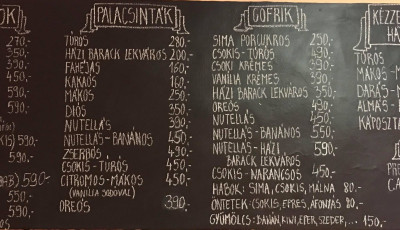 OK
PALACSINTÁK
GOFRIK
KÉZZE
HÁ
270.-
350.-
390.-
450.-
350.-
590.-
590.-
590.-
590.-
550.-
590.-
TÚRÓS 280.-
HÁZI BARACK LEKVÁROS 200.-
FAHÉJAS 160.-
KAKAÓS 160.-
MÁKOS 250.-
DIÓS 350.-
NUTELLÁS 390.-
NUTELLÁS-BANÁNOS 450.-
ZSERBÓS 490.-
CSOKIS-TÚRÓS 450.-
CITROMOS-MÁKOS 450.-
(VANÍLIA SODÓVAL)
OREÓS 390.-
SIMA PORCUKROS 250.-
CSOKIS-TÚRÓS 490.-
CSOKI KRÉMES 390.-
VANÍLIA KRÉMES 390.-
HÁZI BARACK LEKVÁROS 350.-
OREÓS 490.-
NUTELLÁS 450.-
NUTELLÁS-BANÁNOS 550.-
NUTELLÁS-HÁZI 590.-
BARACK LEKVÁROS
CSOKIS-NARANCSOS 450.-
HABOK: SIMA, CSOKIS, MÁLNA 80.-
ÖNTETEK: CSOKIS, EPRES, ÁFONYÁS 80.-
GYÜMÖLCS: BANÁN, KIWI, EPER, SZEDER, ... 150.-
TÚRÓS
MÁKOS-M
DARÁS-M
ALMÁS-
KÁPOSZTÁ